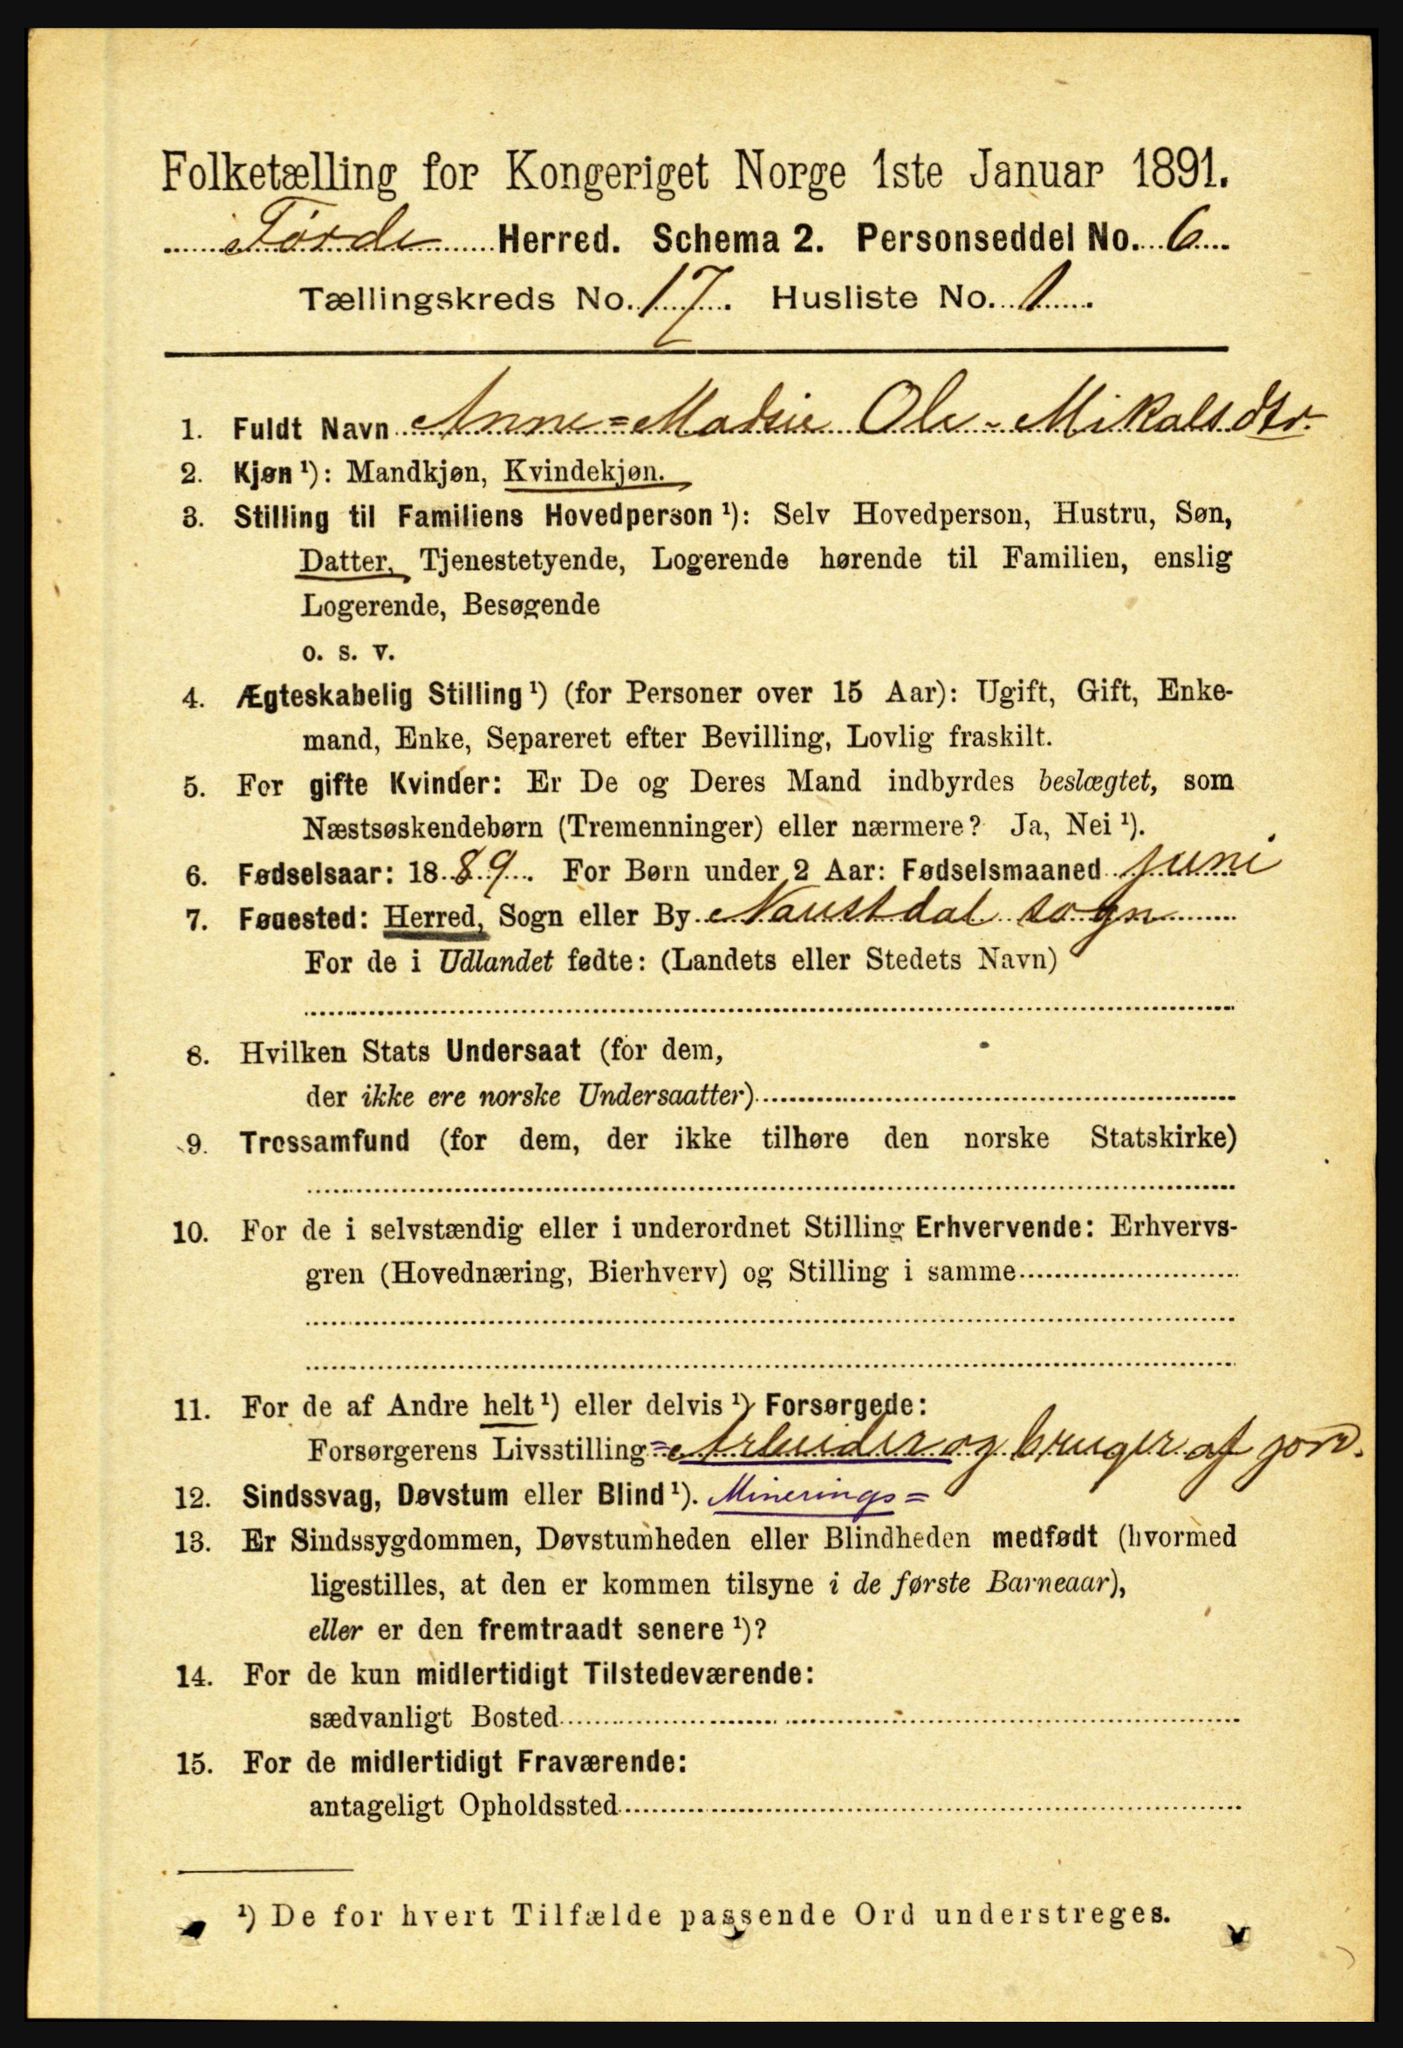 Folketælling for Kongeriget Norge 1ste Januar 1891.
Førde Herred. Schema 2. Personseddel No. 6
Tællingskreds No. 17. Husliste No. 1.
1. Fuldt Navn Anne=Madsie Ole-Mikalsdtr.
2. Kjøn ¹): Mandkjøn, Kvindekjøn.
3. Stilling til Familiens Hovedperson ¹): Selv Hovedperson, Hustru, Søn,
Datter, Tjenestetyende, Logerende hørende til Familien, enslig
Logerende, Besøgende
o. s. v.
4. Ægteskabelig Stilling ¹) (for Personer over 15 Aar): Ugift, Gift, Enke-
mand, Enke, Separeret efter Bevilling, Lovlig fraskilt.
5. For gifte Kvinder: Er De og Deres Mand indbyrdes beslægtet, som
Næstsøskendebørn (Tremenninger) eller nærmere? Ja, Nei ¹).
6. Fødselsaar: 1889. For Børn under 2 Aar: Fødselsmaaned juni
7. Føuested: Herred, Sogn eller By Naustdal sogn
For de i Udlandet fødte: (Landets eller Stedets Navn)
8. Hvilken Stats Undersaat (for dem,
der ikke ere norske Undersaatter)
9. Trossamfund (for dem, der ikke tilhøre den norske Statskirke)
10. For de i selvstændig eller i underordnet Stilling Erhvervende: Erhvervs-
gren (Hovednæring, Bierhverv) og Stilling i samme
11. For de af Andre helt ¹) eller delvis ¹) Forsørgede:
Forsørgerens Livsstilling = Arbeider og bruger af jord.
12. Sindssvag, Døvstum eller Blind ¹). Minerings=
13. Er Sindssygdommen, Døvstumheden eller Blindheden medfødt (hvormed
ligestilles, at den er kommen tilsyne i de første Barneaar),
eller er den fremtraadt senere ¹)?
14. For de kun midlertidigt Tilstedeværende:
sædvanligt Bosted
15. For de midlertidigt Fraværende:
antageligt Opholdssted
¹) De for hvert Tilfælde passende Ord understreges.